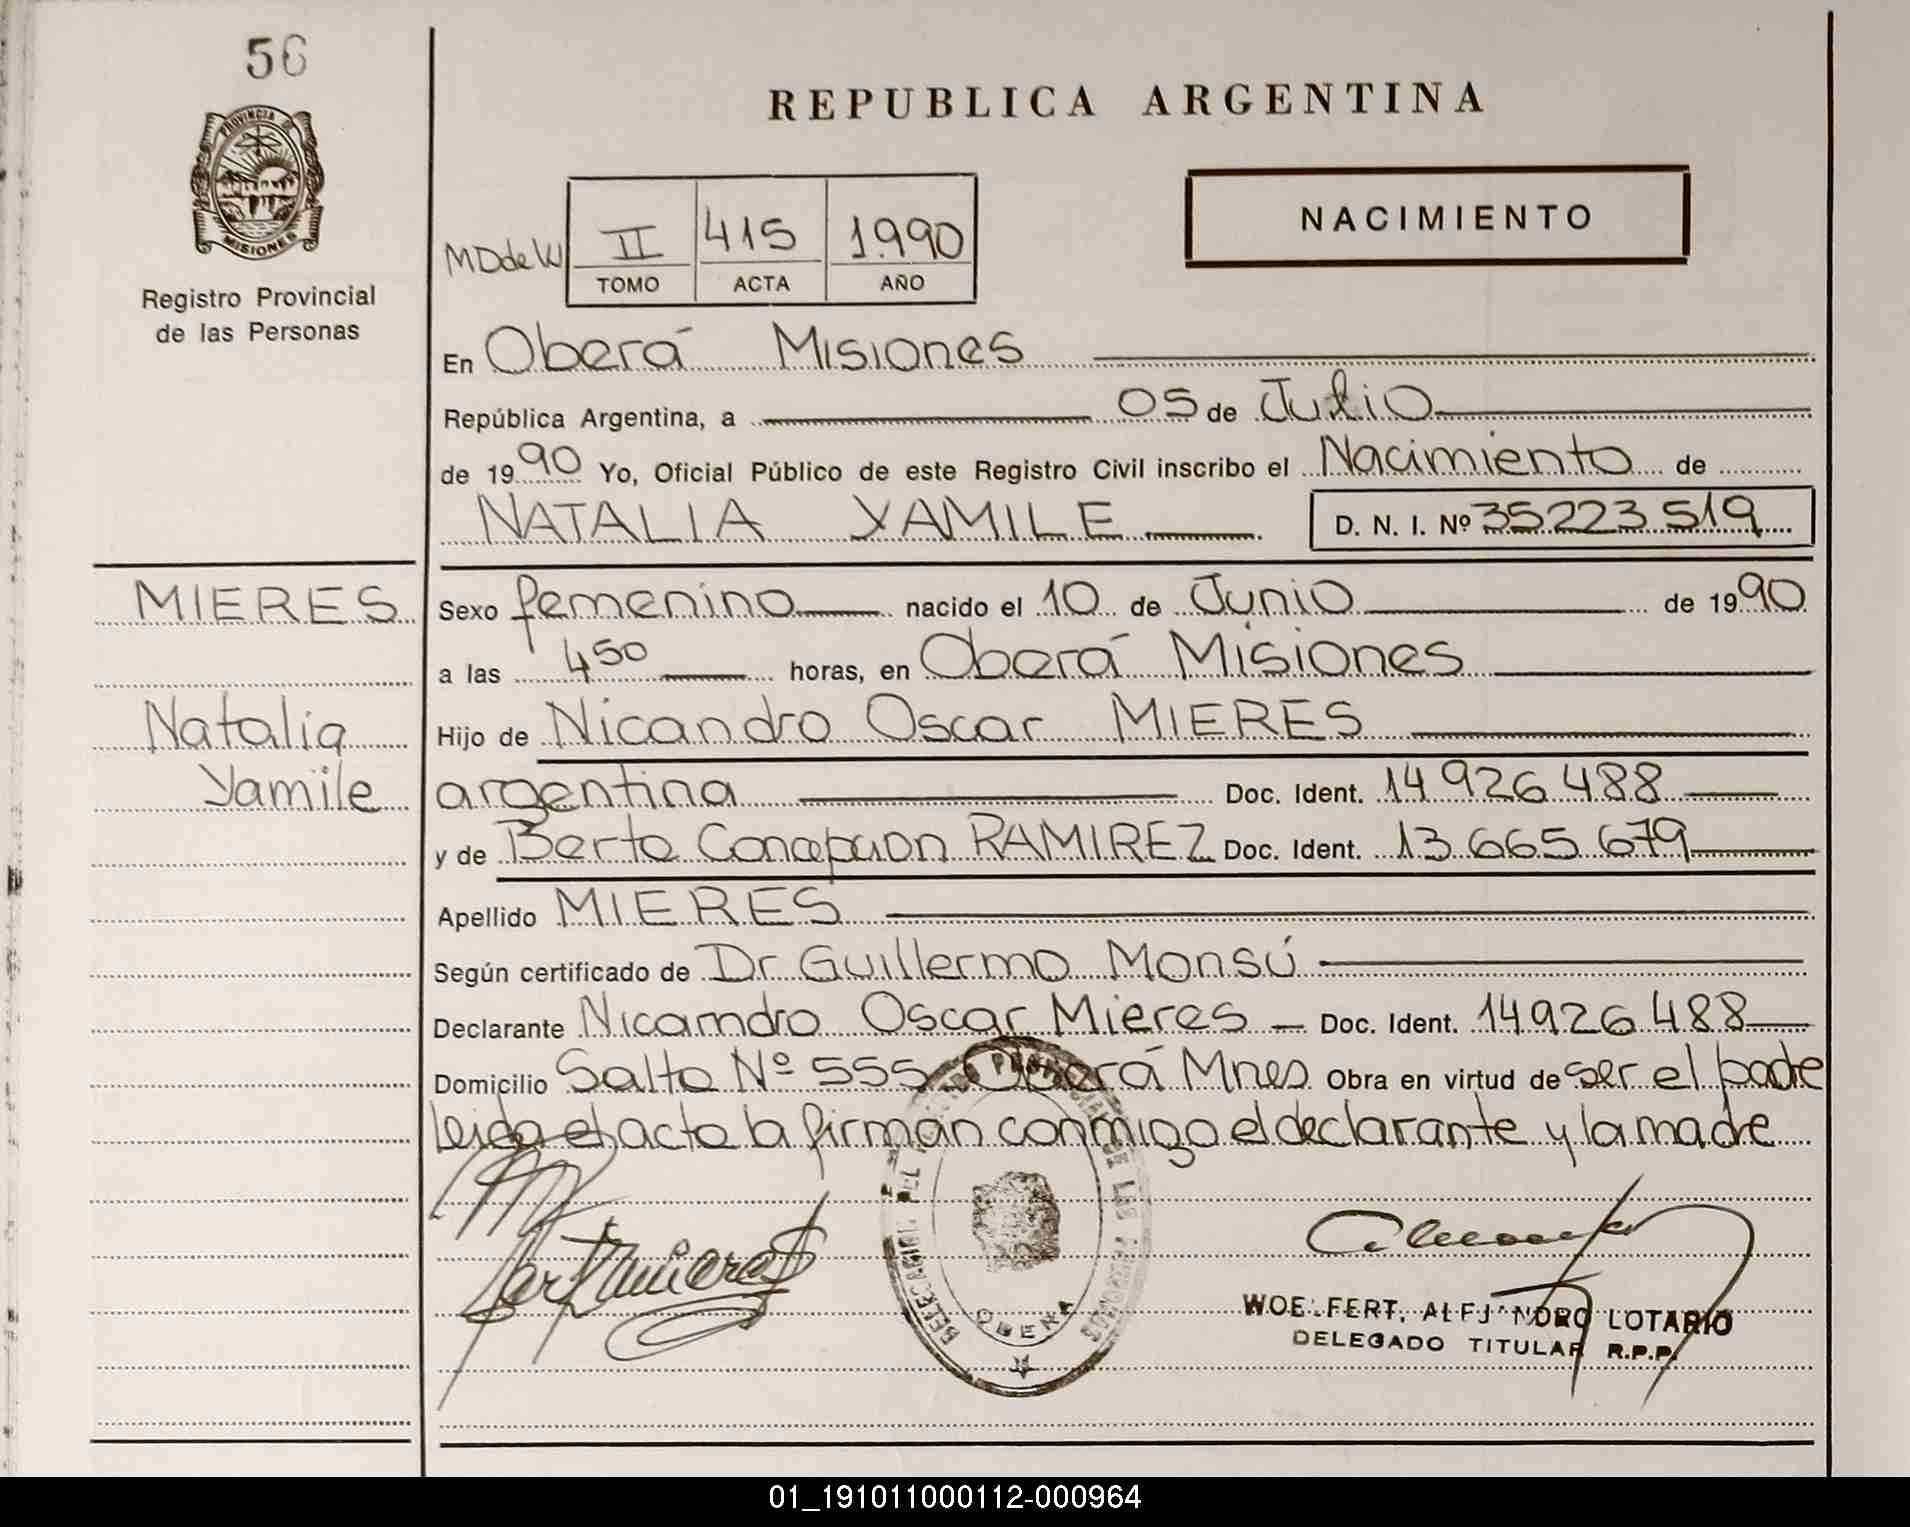 56
PROVINCIA DE
MISIONES
Registro Provincial
de las Personas
REPUBLICA ARGENTINA
NACIMIENTO
MDdeW II 415 1.990
TOMO ACTA AÑO
En Oberá Misiones
República Argentina, a 05 de Julio
de 1990 Yo, Oficial Público de este Registro Civil inscribo el Nacimiento de
NATALIA YAMILE D. N. I. Nº 35223519
MIERES
Natalia
Yamile
Sexo femenino nacido el 10 de Junio de 1990
a las 4 50 horas, en Oberá Misiones
Hijo de Nicandro Oscar MIERES
argentina Doc. Ident. 14926488
y de Berta Concepcion RAMIREZ Doc. Ident. 13.665.679
Apellido MIERES
Según certificado de Dr Guillermo Monsú
Declarante Nicamdro Oscar Mieres Doc. Ident. 14926488
Domicilio Salto Nº 555 Oberá Mnes Obra en virtud de ser el padre
Leida el acta la firman conmigo el declarante y la madre
DELEGACION DEL REGISTRO PROVINCIAL DE LAS PERSONAS
OBERA
WOELFERT, ALEJANDRO LOTARIO
DELEGADO TITULAR R.P.P.
01_191011000112-000964